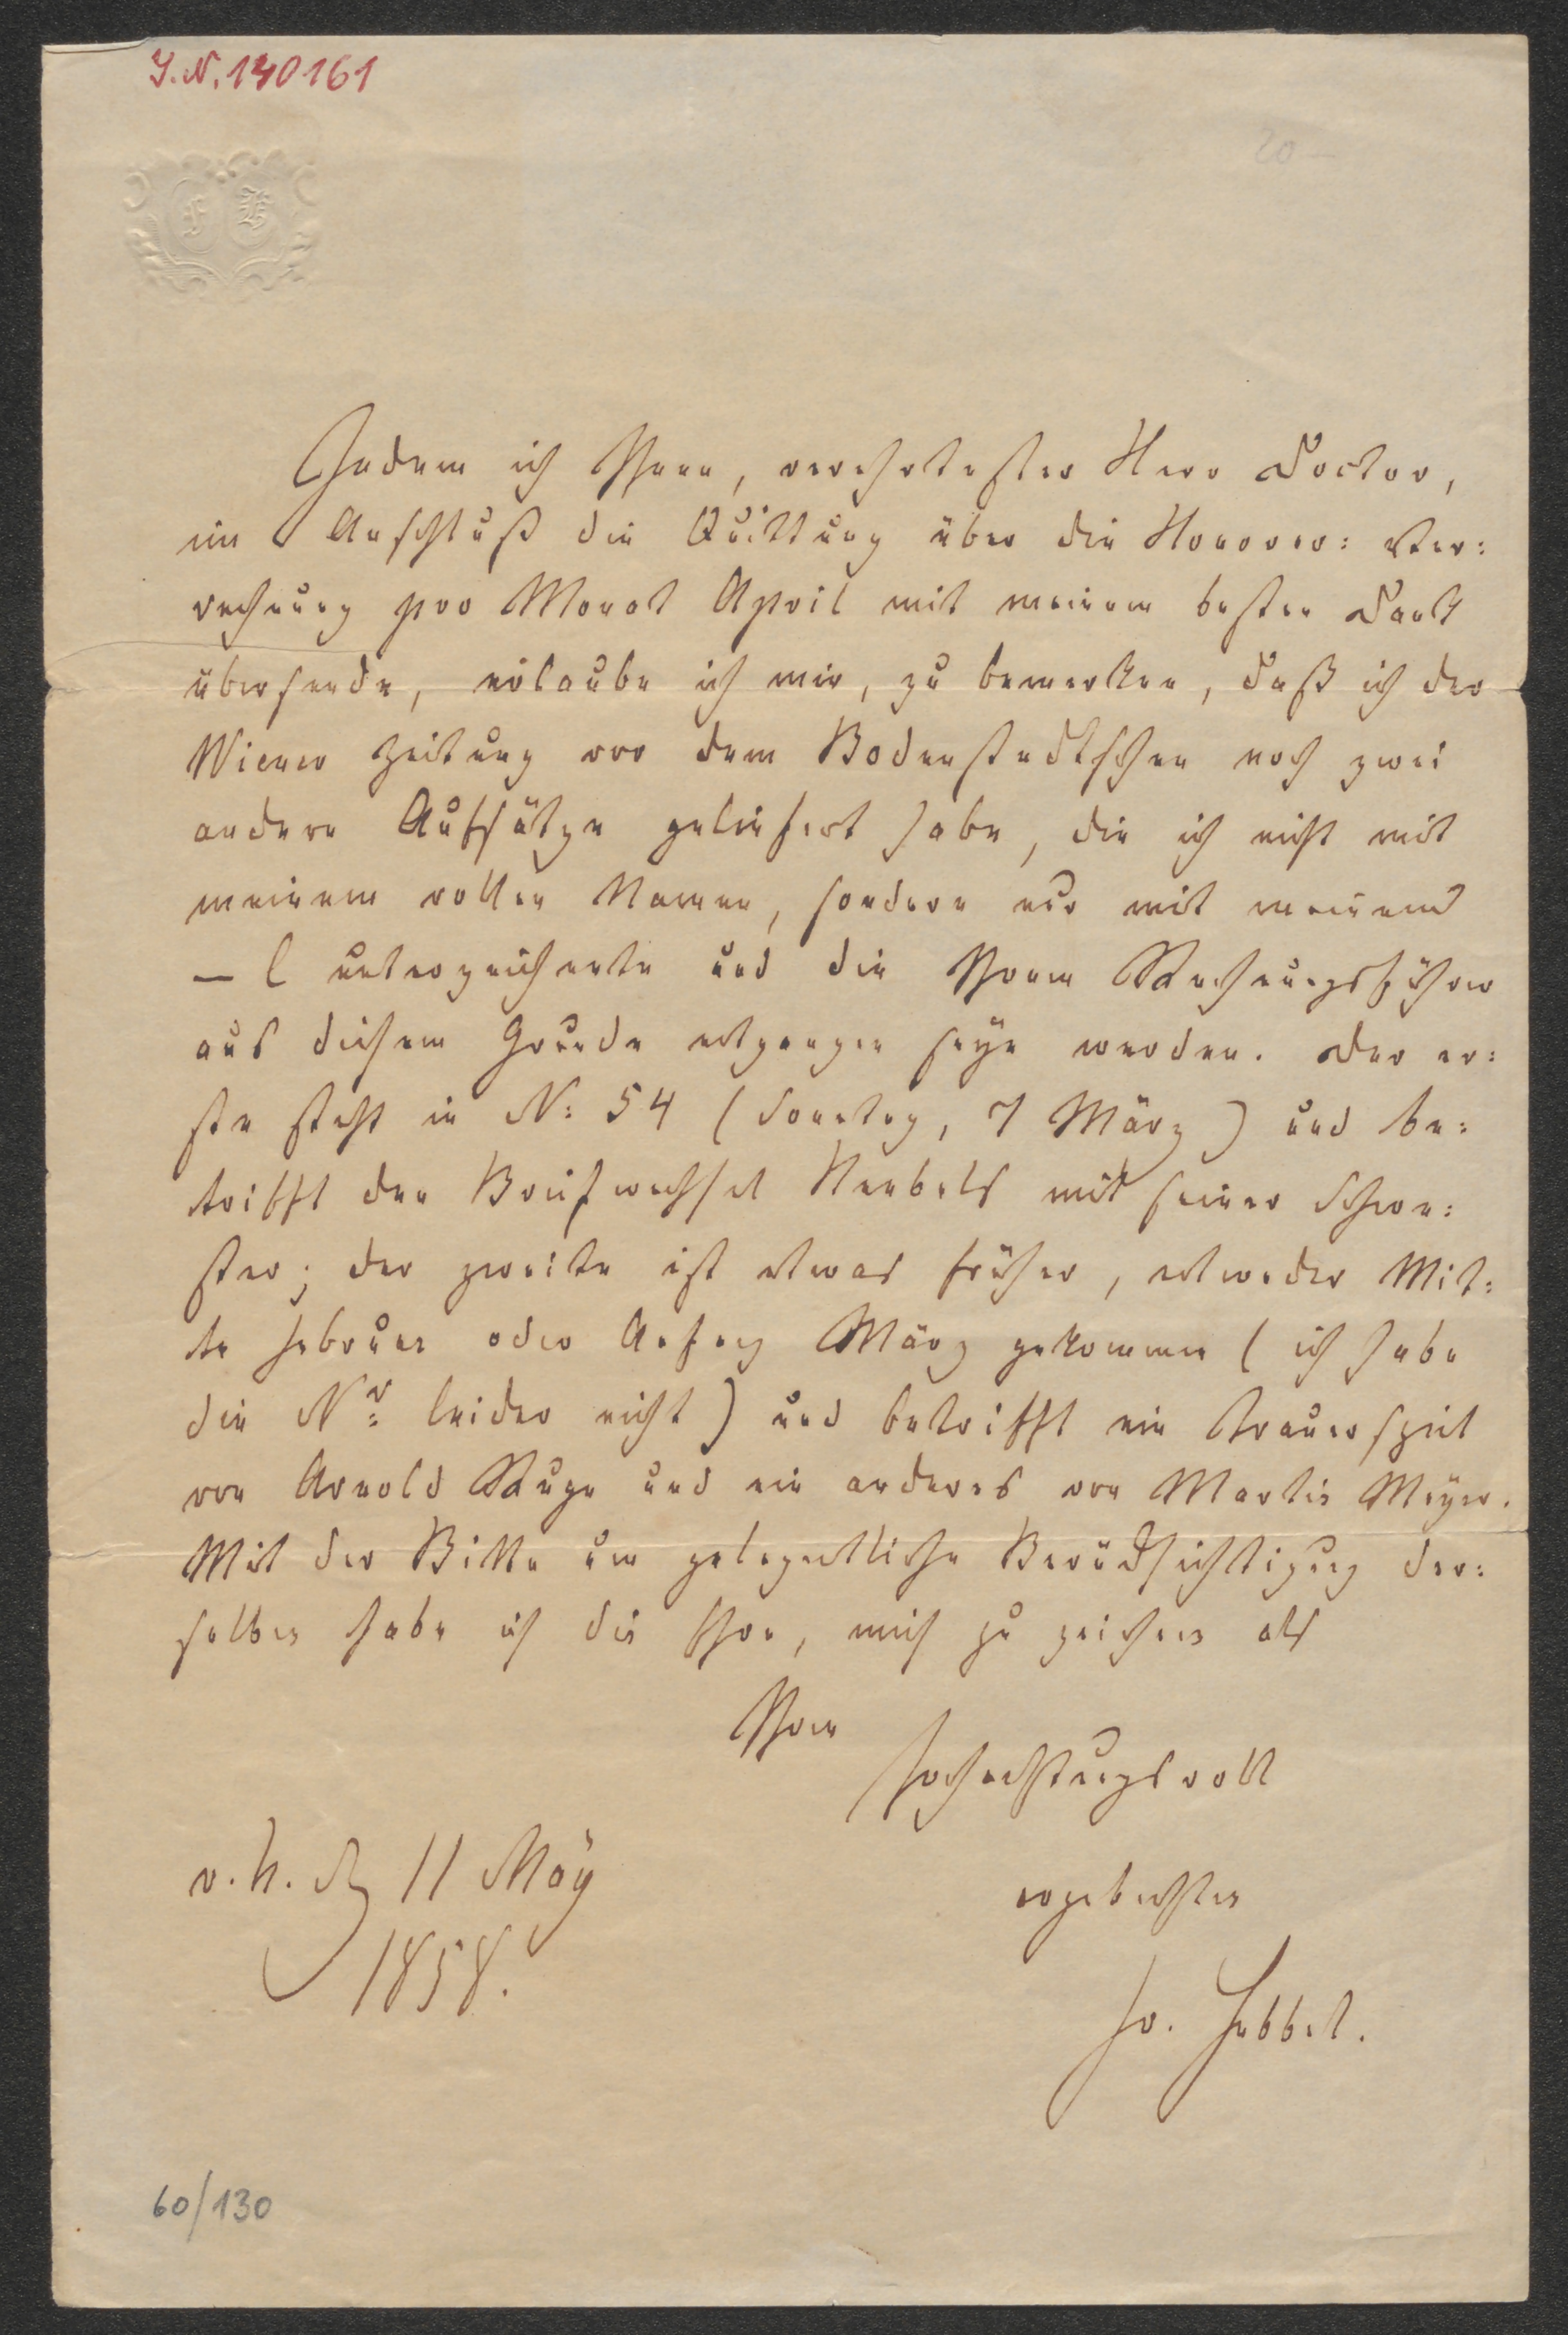 I.N. 140161
20 –
F H
Indem ich Ihnen, verehrtester Herr Doctor,
im Anschluß die Quittung über die Honorar: Ver:
rechnung pro Monat April mit meinem besten Dank
übersende, erlaube ich mir, zu bemerken, daß ich der
Wiener Zeitung vor dem Bodenstedtschen noch zwei
andere Aufsätze geliefert habe, die ich nicht mit
meinem vollen Namen, sondern nur mit meinem
– l unterzeichnete und die Ihrem Rechnungsführer
aus diesem Grunde entgangen seyn werden. Der er:
ste steht in N: 54 (Sonntag, 7 März) und be:
trifft den Briefwechsel Knebels mit seiner Schwe:
ster; der zweite ist etwas früher, entweder Mit:
te Februar oder Anfang März gekommen (ich habe
die Nr: leider nicht) und betrifft ein Trauerspiel
von Arnold Ruge und ein anderes von Martin Meyer.
Mit der Bitte um gelegentliche Berücksichtigung der:
selben habe ich die Ehre, mich zu zeichnen als
Ihren
hochachtungsvoll
v. H. d. 11 May
ergebenster
1858.
Fr. Hebbel.
60/130